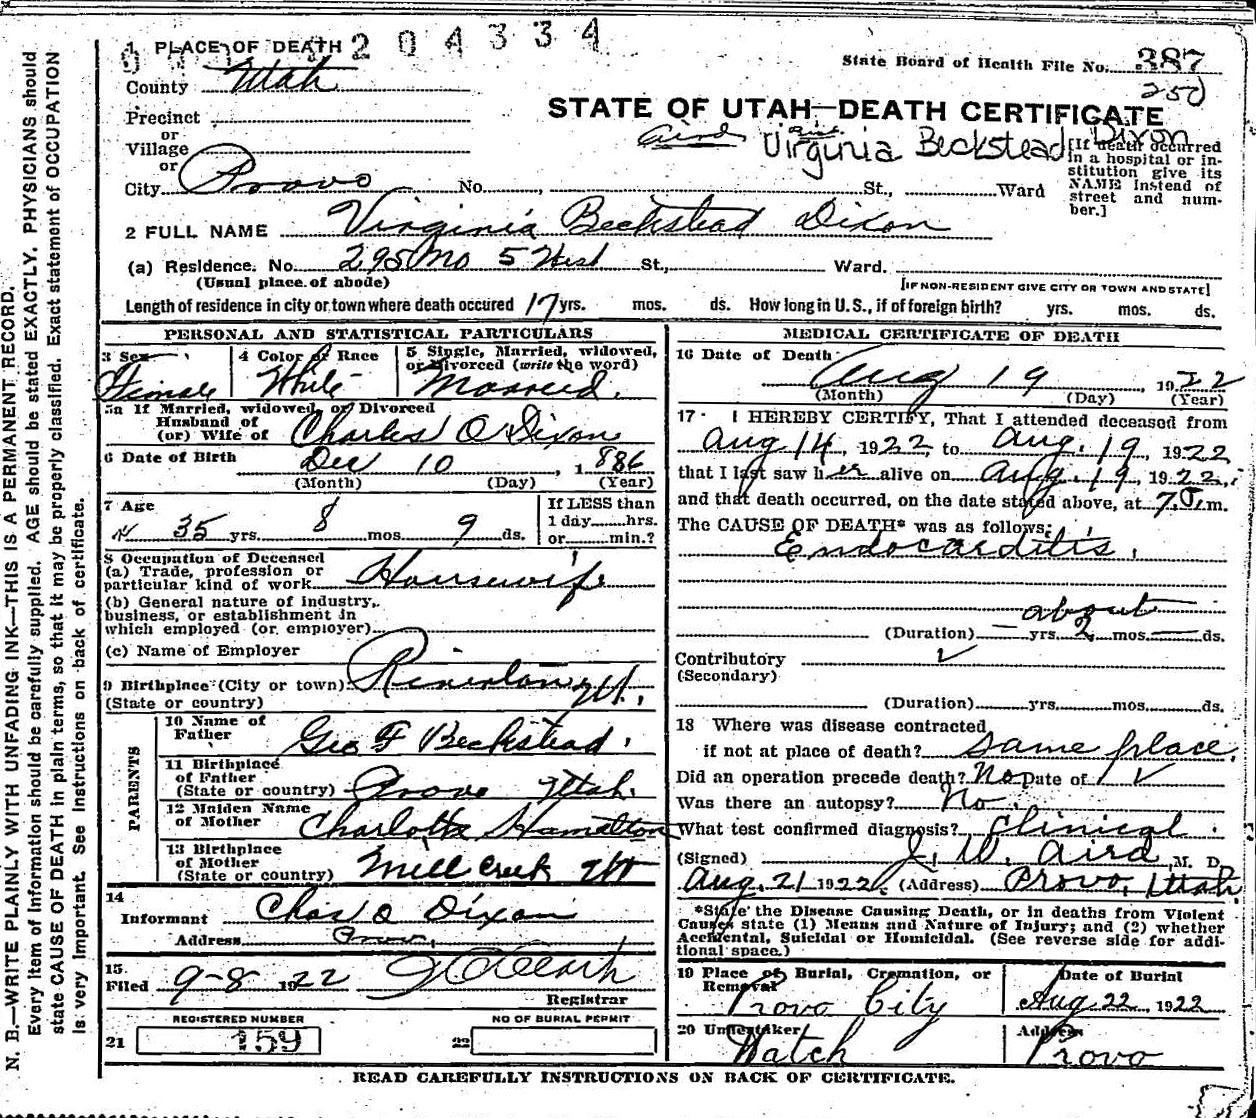 204334
1 PLACE OF DEATH
County Utah
State Board of Health File No. 387
250
Precinct
or
Village
or
STATE OF UTAH—DEATH CERTIFICATE
Aird Virginia Beckstead Dixon
City Provo No. , St., Ward
[If death occurred in a hospital or institution give its NAME instead of street and number.]
2 FULL NAME Virginia Beckstead Dixon
(a) Residence. No. 295 No 5 West St., Ward.
(Usual place of abode)
[IF NON-RESIDENT GIVE CITY OR TOWN AND STATE]
Length of residence in city or town where death occured 17 yrs. mos. ds. How long in U.S., if of foreign birth? yrs. mos. ds.
PERSONAL AND STATISTICAL PARTICULARS
3 Sex Female
4 Color of Race White
5 Single, Married, widowed, or Divorced (write the word) Married.
5a If Married, widowed, or Divorced
Husband of
(or) Wife of Charles O Dixon
6 Date of Birth Dec 10, 1886
(Month) (Day) (Year)
7 Age
35 yrs. 8 mos. 9 ds.
If LESS than
1 day hrs.
or min.?
8 Occupation of Deceased
(a) Trade, profession or
particular kind of work Housewife
(b) General nature of industry,
business, or establishment in
which employed (or employer)
(c) Name of Employer
9 Birthplace (City or town) Riverton Ut.
(State or country)
PARENTS
10 Name of
Father Geo F Beckstead.
11 Birthplace
of Father
(State or country) Provo Utah.
12 Maiden Name
of Mother Charlotte Hamelton
13 Birthplace
of Mother
(State or country) Mill Creek Ut
14
Informant Chas O Dixon
Address Provo.
15
Filed 9-8 1922
Registrar
REGISTERED NUMBER
21 159
NO OF BURIAL PERMIT
22
MEDICAL CERTIFICATE OF DEATH
16 Date of Death
Aug 19, 1922
(Month) (Day) (Year)
17 I HEREBY CERTIFY, That I attended deceased from
Aug 14, 1922, to Aug. 19, 1922
that I last saw her alive on Aug. 19, 1922,
and that death occurred, on the date stated above, at 7. m.
The CAUSE OF DEATH* was as follows:
Endocarditis.
about
(Duration) — yrs. 2 mos. — ds.
Contributory
(Secondary)
(Duration) yrs. mos. ds.
18 Where was disease contracted
if not at place of death? same place.
Did an operation precede death? No Date of
Was there an autopsy? No.
What test confirmed diagnosis? Clinical.
(Signed) J. W. Aird, M. D.
Aug. 21 1922. (Address) Provo, Utah
*State the Disease Causing Death, or in deaths from Violent
Causes state (1) Means and Nature of Injury; and (2) whether
Accidental, Suicidal or Homicidal. (See reverse side for addi-
tional space.)
19 Place of Burial, Cremation, or
Removal
Provo City
Date of Burial
Aug 22, 1922
20 Undertaker
Hatch
Address
Provo
READ CAREFULLY INSTRUCTIONS ON BACK OF CERTIFICATE.
N. B.—WRITE PLAINLY WITH UNFADING INK—THIS IS A PERMANENT RECORD.
Every item of information should be carefully supplied. AGE should be stated EXACTLY. PHYSICIANS should
state CAUSE OF DEATH in plain terms, so that it may be properly classified. Exact statement of OCCUPATION
is very important. See instructions on back of certificate.